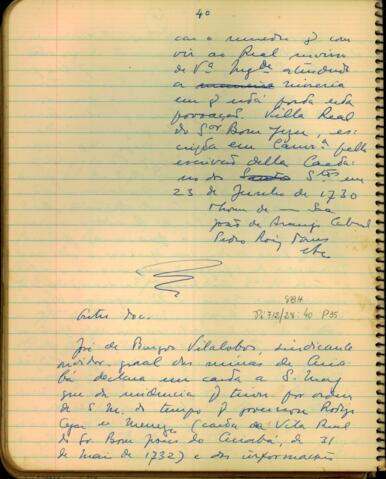 40
car o remedio q̃ con
vir ao Real serviso
de Vª Magde attendendo
a miseria
em q̃ está posta esta
povoação. Villa Real
do Sor Bom Jezus, es-
cripta em Camrª pello
escrivão della Caeta-
no dos Stos em
23 de Junho de 1730
Thome de — Sa
João de Araujo Cabral
Pedro Roiz
etc
Outro doc.
884
P 35
José de Burgos Vilalobos, sindicante
ouvidor geral das minas de Cuia-
bá declara em carta a S. Mag
que da residencia q̃ tirou por ordem
de S. M. do tempo q̃ governou Rodrigo
Cezar de Menezes (carta da Vila Real
do Sr. Bom Jesus do Cuiabá, de 21
de Maio de 1732) e das informações